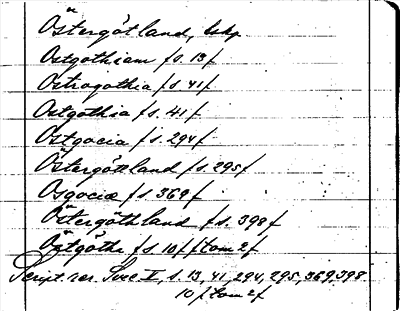 Östergötland, lskp
Ostgothiam /s. 13/
Ostrogothia /s. 41/
Ostgothia /s. 41/
Ostgocia /s. 294/
Östergötland /s. 295/
Osgociæ /s. 369/
Östergöthland /s. 398/
Östgöthe /s. 10/ /tom 2/
Script. rer. Svec II, s. 13, 41, 294, 295, 369, 398
10 /tom 2/